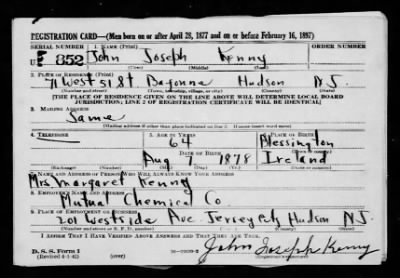 REGISTRATION CARD—(Men born on or after April 28, 1877 and on or before February 16, 1897)
SERIAL NUMBER 1. NAME (Print) ORDER NUMBER
U 852 John Joseph Kenny
(First) (Middle) (Last)
2. PLACE OF RESIDENCE (Print)
71 West 51 st Bayonne Hudson N.J.
(Number and street) (Town, township, village, or city) (County) (State)
[THE PLACE OF RESIDENCE GIVEN ON THE LINE ABOVE WILL DETERMINE LOCAL BOARD
JURISDICTION; LINE 2 OF REGISTRATION CERTIFICATE WILL BE IDENTICAL]
3. MAILING ADDRESS
Same
(Mailing address if other than place indicated on line 2. If same insert word same)
4. TELEPHONE 5. AGE IN YEARS
64 Blessington
DATE OF BIRTH
Aug 7 1878 Ireland
(Mo.) (Day) (Yr.)
7. NAME AND ADDRESS OF PERSON WHO WILL ALWAYS KNOW YOUR ADDRESS
Mrs Margaret Kenny
8. EMPLOYER'S NAME AND ADDRESS
Mutual Chemical Co.
9. PLACE OF EMPLOYMENT OR BUSINESS
201 Westside Ave Jersey City Hudson N.J.
(Number and street or R. F. D. number) (Town) (County) (State)
I AFFIRM THAT I HAVE VERIFIED ABOVE ANSWERS AND THAT THEY ARE TRUE.
D. S. S. Form 1
(Revised 4-1-42) (over) John Joseph Kenny